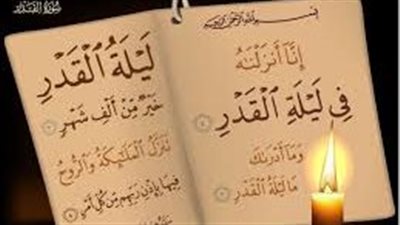 سورة القدر
بسم الله الرحمن الرحيم
إِنَّا أَنزَلْنَٰهُ
فِي لَيْلَةِ ٱلْقَدْرِ
وَمَا أَدْرَىٰكَ
مَا لَيْلَةُ ٱلْقَدْرِ
لَيْلَةُ ٱلْقَدْرِ
خَيْرٌ مِّنْ أَلْفِ شَهْرٍ
تَنَزَّلُ ٱلْمَلَٰٓئِكَةُ وَٱلرُّوحُ
فِيهَا بِإِذْنِ رَبِّهِم مِّن كُلِّ أَمْرٍ